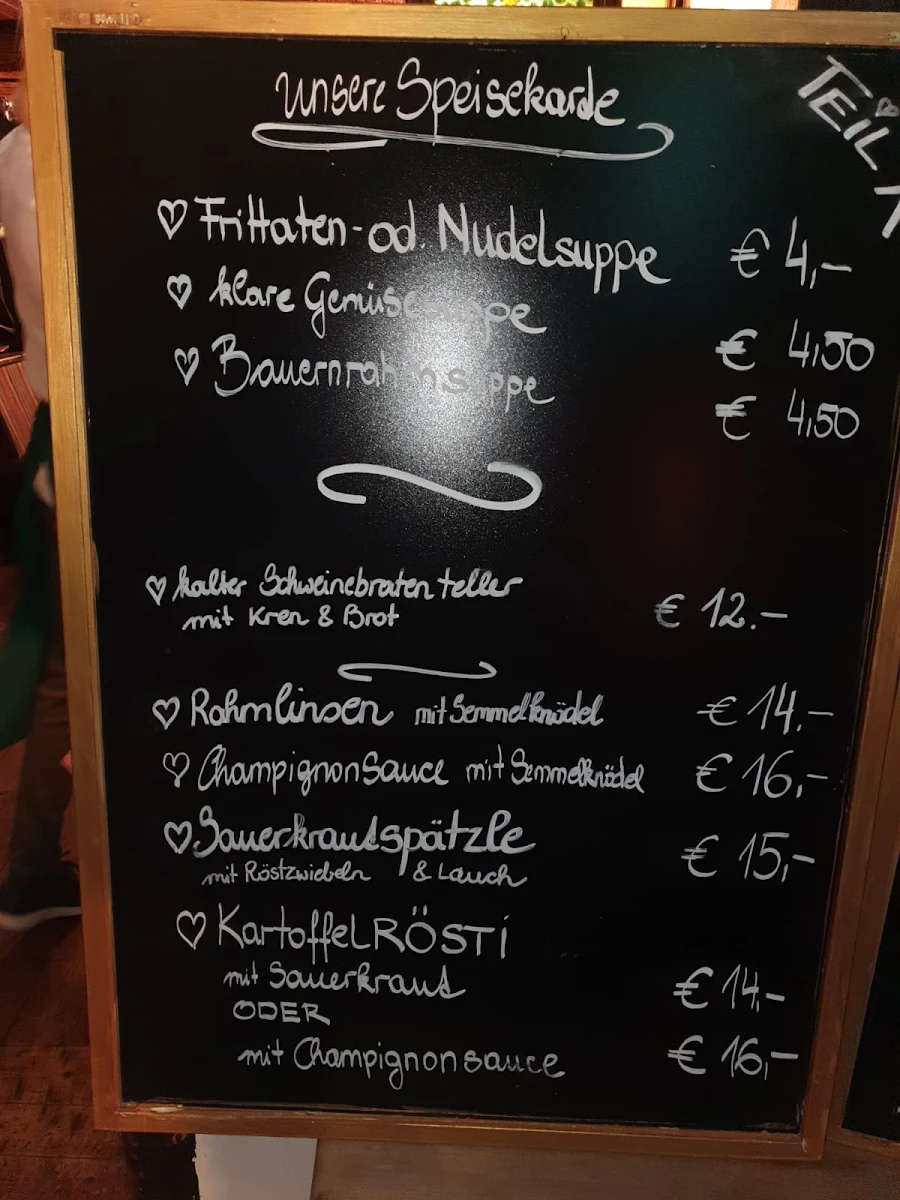 unsere Speisekarte
TEIL 1
Frittaten- od. Nudelsuppe € 4,-
klare Gemüsesuppe € 4,50
Bauernrahmsuppe € 4,50
kalter Schweinebraten teller
mit Kren & Brot € 12.-
Rahmlinsen mit Semmelknödel € 14.-
Champignonsauce mit Semmelknödel € 16,-
Sauerkrautspätzle € 15,-
mit Röstzwiebeln & Lauch
Kartoffel RÖSTi
mit Sauerkraut € 14,-
ODER
mit Champignonsauce € 16,-